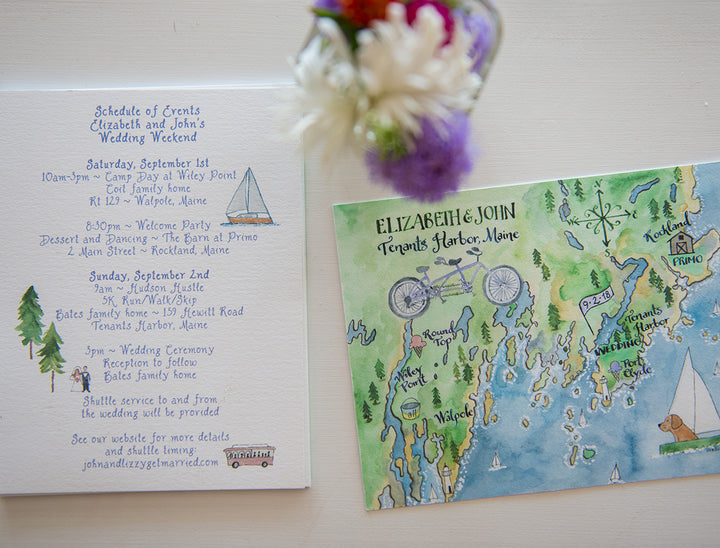 Schedule of Events
Elizabeth and John's
Wedding Weekend
Saturday, September 1st
10am-3pm ~ Camp Day at Wiley Point
Coit family home
Rt 129 ~ Walpole, Maine
8:30pm ~ Welcome Party
Dessert and Dancing ~ The Barn at Primo
2 Main Street ~ Rockland, Maine
Sunday, September 2nd
9am ~ Hudson Hustle
5K Run/Walk/Skip
Bates family home ~ 159 Hewitt Road
Tenants Harbor, Maine
3pm ~ Wedding Ceremony
Reception to follow
Bates family home
Shuttle service to and from
the wedding will be provided
See our website for more details
and shuttle timing:
johnandlizzygetmarried.com
ELIZABETH & JOHN
Tenants Harbor, Maine
Rockland
PRIMO
9-2-18
Tenants
Harbor
WEDDING
Round
Top
Port
Clyde
Wiley
Point
Walpole